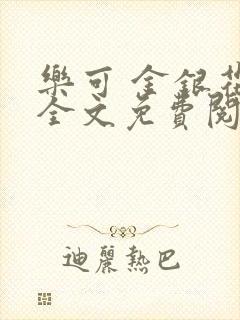 樂可 金銀花
全文免費閱
迪麗熱巴